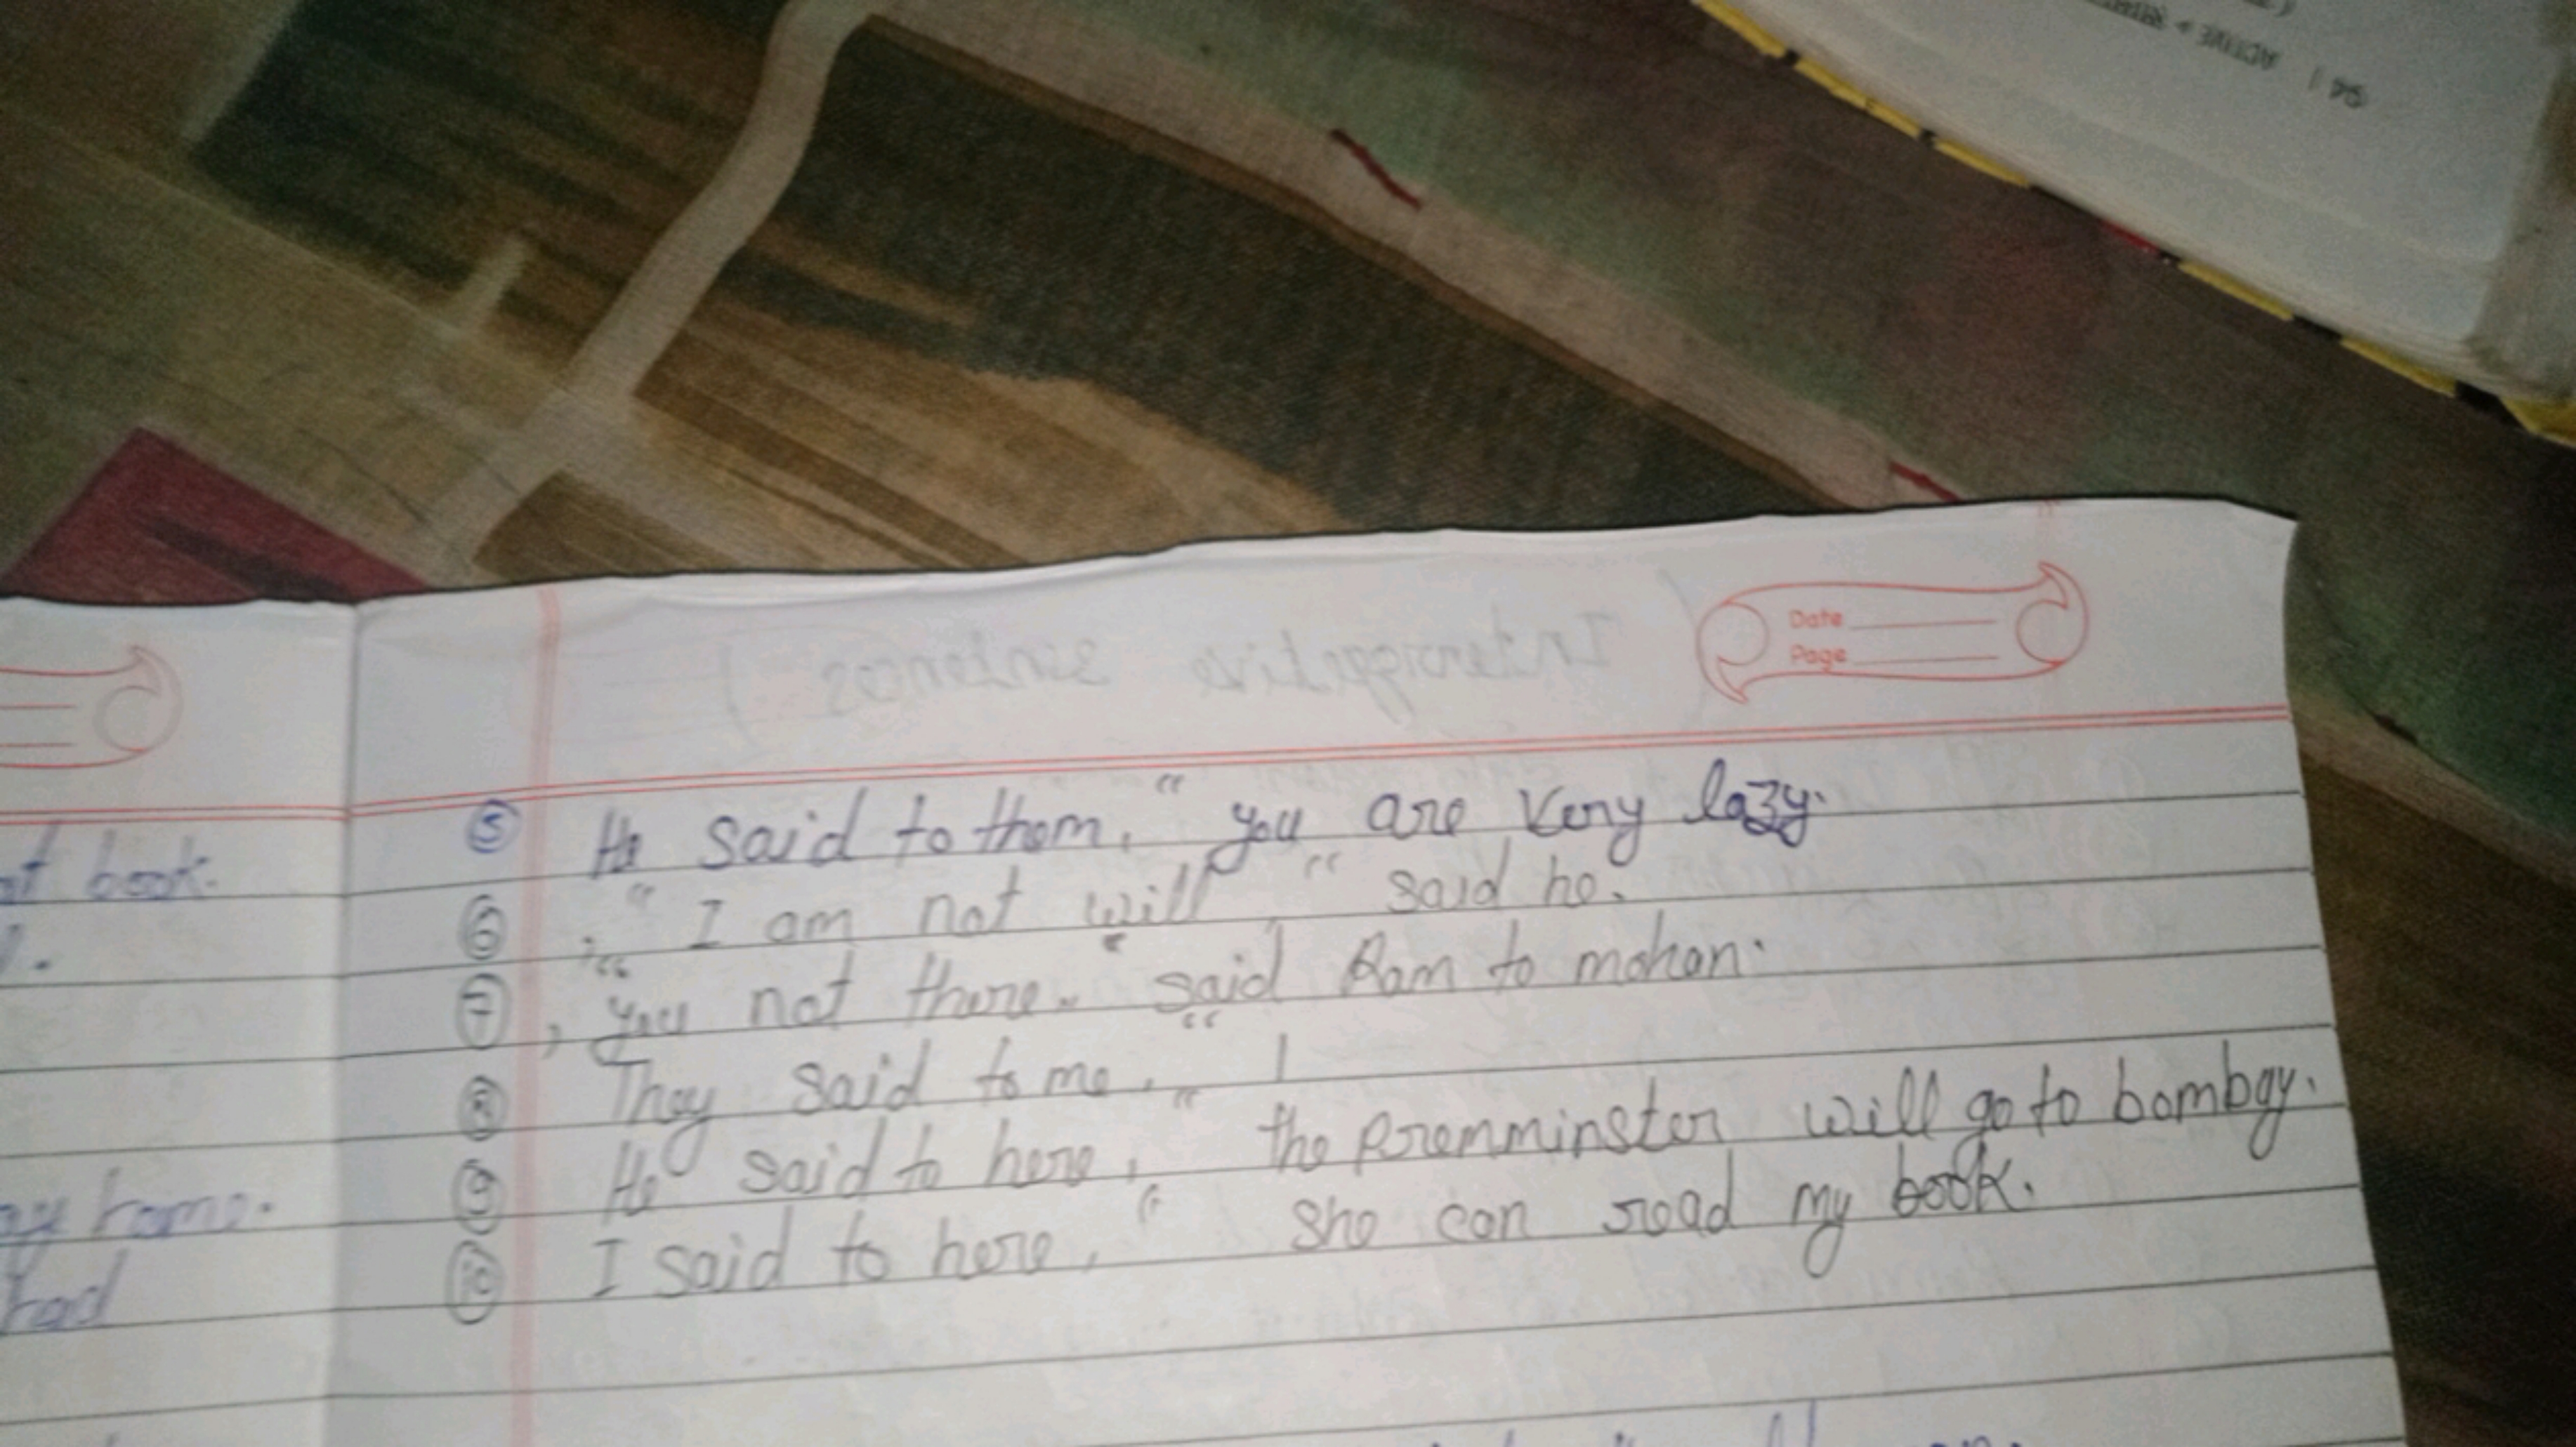 94 | ACTIVE
Interrogative sintences
Date
Page
book.
⑤ He said to them, “ you are very lazy.
⑥ , “ I am not will , “ said he.
⑦ , “ you not there. “ said Ram to mohan.
⑧ They said to me, “ I
⑨ He said to here, “ the premminster will go to bombay.
⑩ I said to here, “ She can read my book.
home.
had